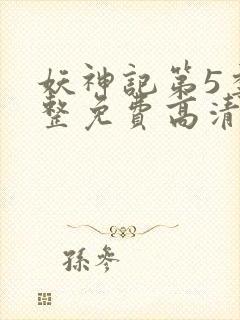 妖神記第5
整免費高清
孫參